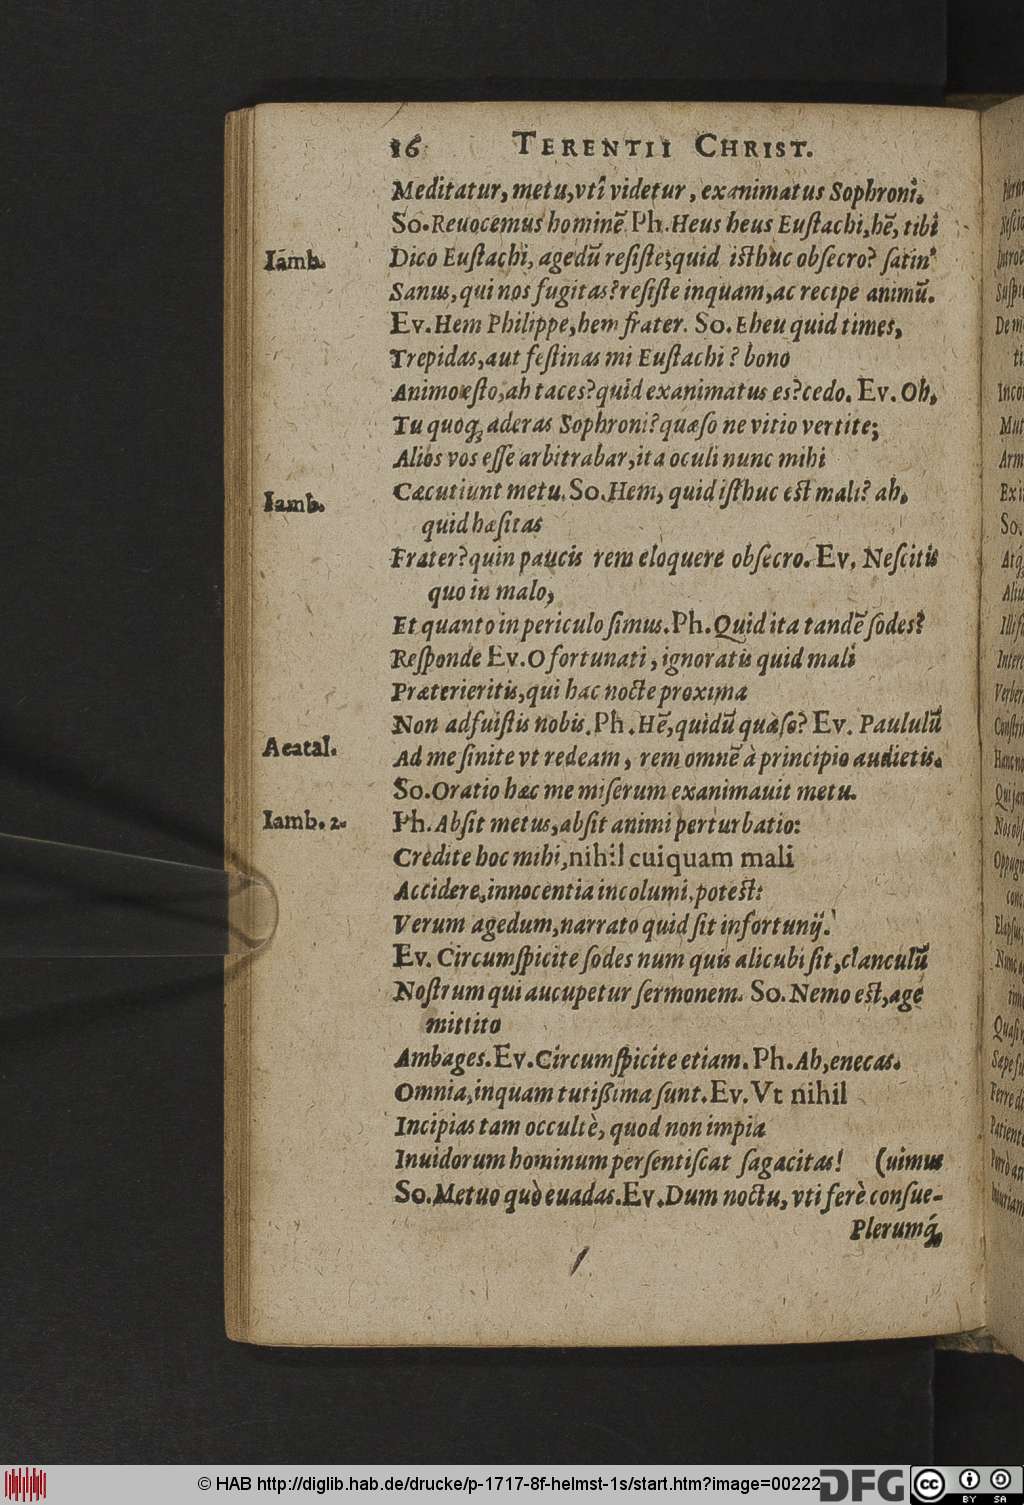 16 TERENTII CHRIST.
Meditatur, metu, vtî videtur, exanimatus Sophroni.
So. Reuocemus hominẽ. Ph. Heus heus Euſtachi, hẽ, tibi
Iamb. Dico Euſtachi, agedũ reſiſte; quid iſthuc obſecro? ſatin'
Sanus, qui nos fugitas? reſiſte inquam, ac recipe animũ.
Ev. Hem Philippe, hem frater. So. Eheu quid times,
Trepidas, aut feſtinas mi Euſtachi? bono
Animo eſto, ah taces? quid exanimatus es? cedo. Ev. Oh,
Tu quoq; aderas Sophroni? quæſo ne vitio vertite;
Alios vos eſſe arbitrabar, ita oculi nunc mihi
Iamb. Cæcutiunt metu. So. Hem, quid iſthuc eſt mali? ah,
quid hæſitas
Frater? quin paucis rem eloquere obſecro. Ev. Neſcitis
quo in malo,
Et quanto in periculo ſimus. Ph. Quid ita tandẽ ſodes?
Reſponde Ev. O fortunati, ignoratis quid mali
Præterieritis, qui hac nocte proxima
Non adfuiſtis nobis. Ph. Hẽ, quidũ quæſo? Ev. Paululũ
Acatal. Ad me ſinite vt redeam, rem omnẽ à principio audietis.
So. Oratio hæc me miſerum exanimauit metu.
Iamb. 2. Ph. Abſit metus, abſit animi perturbatio:
Credite hoc mihi, nihil cuiquam mali
Accidere, innocentia incolumi, poteſt:
Verum agedum, narrato quid ſit infortunij.
Ev. Circumſpicite ſodes num quis alicubi ſit, clanculũ
Noſtrum qui aucupetur ſermonem. So. Nemo eſt, age
mittito
Ambages. Ev. Circumſpicite etiam. Ph. Ah, enecas.
Omnia, inquam tutißima ſunt. Ev. Vt nihil
Incipias tam occultè, quod non impia
Inuidorum hominum perſentiſcat ſagacitas! (uimus
So. Metuo quò euadas. Ev. Dum noctu, vti ferè conſue-
Plerumq́;
© HAB http://diglib.hab.de/drucke/p-1717-8f-helmst-1s/start.htm?image=00222
DFG
cc BY SA